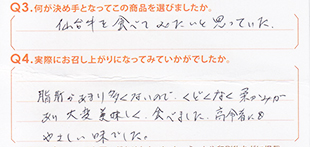 Q3.何が決め手となってこの商品を選びましたか。
仙台牛を食べてみたいと思っていた。
Q4.実際にお召し上がりになってみていかがでしたか。
脂肪があまり多くないので、くどくなく柔かみが
あり大変美味しく食べました。高令者にも
やさしい味でした。